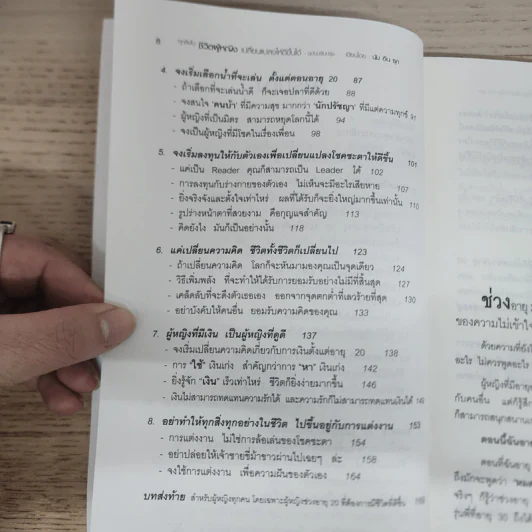 8 ชีวิตผู้หญิง เปลี่ยนแปลงให้ดีขึ้นได้ เขียนโดย : นัม อิน ซุก
4. จงเริ่มเลือกน้ำที่จะเล่น ตั้งแต่ตอนอายุ 20 87
- ถ้าเลือกที่จะเล่นน้ำดี ก็จะเจอปลาที่ดีด้วย 88
- จงสนใจ 'คนบ้า' ที่มีความสุข มากกว่า 'นักปรัชญา' ที่มีแต่ความทุกข์ 91
- ผู้หญิงที่เป็นมิตร สามารถหยุดโลกนี้ได้ 94
- จงเป็นผู้หญิงที่มีโชคในเรื่องเพื่อน 98
5. จงเริ่มลงทุนให้กับตัวเองเพื่อเปลี่ยนแปลงโชคชะตาให้ดีขึ้น 101
- แค่เป็น Reader คุณก็สามารถเป็น Leader ได้ 102
- การลงทุนกับร่างกายของตัวเอง ไม่เห็นจะมีอะไรเสียหาย 107
- ยิ่งจริงจังและตั้งใจเท่าไหร่ ผลที่ได้รับก็จะยิ่งใหญ่มากขึ้นเท่านั้น 110
- รูปร่างหน้าตาที่สวยงาม คือกุญแจสำคัญ 113
- คิดยังไง มันก็เป็นอย่างนั้น 118
6. แค่เปลี่ยนความคิด ชีวิตทั้งชีวิตก็เปลี่ยนไป 123
- ถ้าเปลี่ยนความคิด โลกก็จะหันมามองคุณเป็นจุดเดียว 124
- วิธีเพิ่มพลัง ที่จะทำให้ได้รับการยอมรับอย่างไม่มีที่สิ้นสุด 127
- เคล็ดลับที่จะดึงตัวเธอเอง ออกจากจุดตกต่ำที่เลวร้ายที่สุด 130
- อย่าบังคับให้คนอื่น ยอมรับความคิดของคุณ 133
7. ผู้หญิงที่มีเงิน เป็นผู้หญิงที่ดูดี 137
- จงเริ่มเปลี่ยนความคิดเกี่ยวกับการเงินตั้งแต่อายุ 20 138
- การ "ใช้" เงินเก่ง สำคัญกว่าการ "หา" เงินเก่ง 142
- ยิ่งรู้จัก "เงิน" เร็วเท่าไหร่ ชีวิตก็ยิ่งง่ายมากขึ้น 146
- เงินไม่สามารถทดแทนความรักได้ และความรักก็ไม่สามารถทดแทนเงินได้ 149
8. อย่าทำให้ทุกสิ่งทุกอย่างในชีวิต ไปขึ้นอยู่กับการแต่งงาน 153
- การแต่งงาน ไม่ใช่การล้อเล่นของโชคชะตา 154
- อย่าปล่อยให้เจ้าชายขี่ม้าขาวผ่านไปเฉยๆ ล่ะ 158
- จงใช้การแต่งงาน เพื่อความฝันของตัวเอง 164
บทส่งท้าย สำหรับผู้หญิงทุกคน โดยเฉพาะผู้หญิงช่วงอายุ 20 ที่ต้องการมีชีวิตที่ดีขึ้น
ช่วงอายุ
ของความไม่เข้าใจ
ด้วยความที่ยัง
อะไร ไม่ควรพูดอะไร
ผู้หญิงที่มีอายุ
กับคนอื่น แต่ก็รู้สึก
ก็สามารถสนุกสนาน
ตอนนี้ฉันอายุ
ตอนที่ฉันอายุ
ถึงมักจะพูดว่า
จริงๆ ก็รู้ว่า